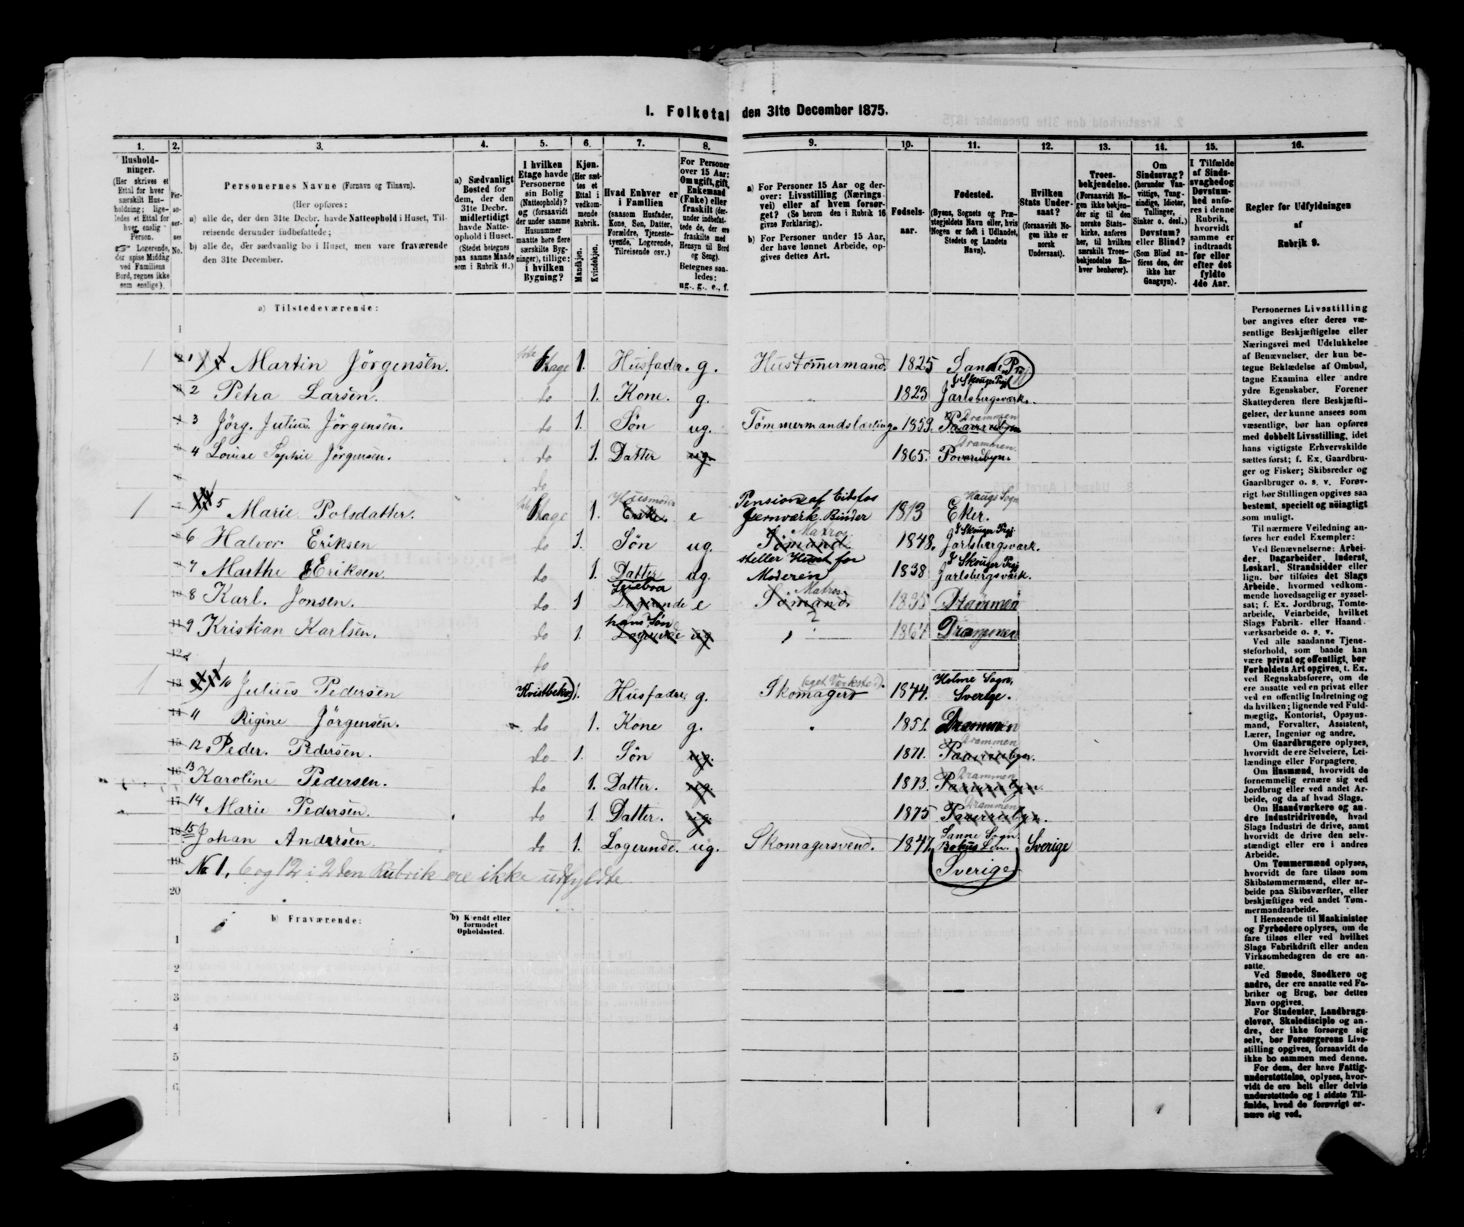 I. Folketal den 31te December 1875.
1. 2. 3. 4. 5. 6. 7. 8. 9. 10. 11. 12. 13. 14. 15. 16.
Hushold-
ninger.
(Her skrives et
Ettal for hver
særskilt Hus-
holdning; lige-
ledes et Ettal for
hver enslig
Person.
Logerende,
der spise Middag
ved Familiens
Bord, regnes ikke
som enslige).
Per-
so-
ner-
nes
No.
Personernes Navne (Fornavn og Tilnavn).
(Her opføres:
a) alle de, der den 31te Decbr. havde Natteophold i Huset, Til-
reisende derunder indbefattede;
b) alle de, der sædvanlig bo i Huset, men vare fraværende
den 31te December.
a) Sædvanligt
Bosted for
dem, der den
31te Decbr.
midlertidigt
havde Natte-
ophold i Huset.
(Stedet betegnes
paa samme Maade
som i Rubrik 11.)
I hvilken
Etage havde
Personerne
sin Bolig
(Natteophold)?
og (forsaavidt
der under samme
Husnummer
maatte høre flere
særskilte Byg-
ninger), tillige:
i hvilken
Bygning?
Kjøn.
(Her sæt-
tes et
Ettal i
vedkom-
mende
Rubrik.
Mandkjøn.
Kvindekjøn.
Hvad Enhver er
i Familien
(saasom Husfader,
Kone, Søn, Datter,
Forældre, Tjeneste-
tyende, Logerende,
Tilreisende osv.)
For Personer
over 15 Aar:
Om ugift, gift,
Enkemand
(Enke) eller
fraskilt
Betegnes saa-
ledes:
ug., g., e., f.
a) For Personer 15 Aar og der-
over: Livsstilling (Nærings-
vei) eller af hvem forsør-
get? (Se herom den i Rubrik 16
givne Forklaring).
b) For Personer under 15 Aar,
der have lønnet Arbeide, op-
gives dettes Art.
Fødsels-
aar.
Fødested.
(Byens, Sognets og Præ-
stegjeldets Navn eller, hvis
Nogen er født i Udlandet,
Stedets og Landets
Navn).
Hvilken
Stats Under-
saat?
(forsaavidt No-
gen ikke er
norsk
Undersaat).
Troes-
bekjendelse.
(Forsaavidt No-
gen ikke bekjen-
der sig til den
norske Stats-
kirke, anføres
her, til hvilken
særskilt Troes-
bekjendelse En-
hver henhører).
Om
Sindssvag?
(herunder Van-
vittige, Tung-
sindige, Idioter,
Tullinger,
Sinker o. desl.)
Døvstum?
eller Blind?
(Som Blind an-
føres den, der
ikke har
Gangsyn).
I Tilfælde
af Sinds-
svaghed og
Døvstum-
hed anfø-
res i denne
Rubrik,
hvorvidt
samme er
indtraadt
før eller
efter det
fyldte
4de Aar.
Regler for Udfyldningen
af
Rubrik 9.
a) Tilstedeværende:
1 1 Martin Jörgensen. Etage 1. Husfader. g. Hustømmermand. 1825 Sande P
2 Petra Larsen. do 1. Kone. g. 1823 Jarlsbergsværk.
3 Jörg. Julius Jörgensen. do 1. Søn ug. Tömmermandslærling 1859. Drammen
4 Louise Sophie Jörgensen. do 1. Datter ug. 1865. Drammen
do
1 5 Marie Polsdatter. Etage 1. Husmoder Enke e Pension af Eidsfos Jernværk. 1813 Haugs Sogn Eker.
6 Halvor Eriksen do 1. Søn ug. Matros Sömand 1848. Jarlsbergsværk.
7 Marthe Eriksen do 1. Datter ug. steller Huset for Moderen 1838 Jarlsbergsværk.
8 Karl. Jonsen. do 1 Logerende e Matros Sømand. 1835 Drammen
9 Kristian Karlsen. do 1. hans Søn Logerende ug ? 1864 Drammen
do
1 10 Julius Pedersen 1. Husfader g. Skomager eget Værksted. 1844. Sverige.
11 Rigine Jörgensen. do 1. Kone g. 1851 Drammen
12 Peder. Pedersen. do 1. Søn ug. 1871. Drammen
13 Karoline Pedersen. do 1. Datter. ug. 1873. Drammen
14 Marie Pedersen. do 1. Datter. ug. 1875 Drammen
15 Johan Andersen do 1. Logerende. ug. Skomagersvend. 1847. Sanne Sogn Bohus Len. Sverige Sverige
No 1, 6 og 12 i 2den Rubrik ere ikke udfyldte
20
b) Fraværende:
b) Kjendt eller
formodet
Opholdssted.
1
2
3
4
5
6
Personernes Livsstilling
bør angives efter deres væ-
sentlige Beskjæftigelse eller
Næringsvei med Udelukkelse
af Benævnelser, der kun be-
tegne Beklædelse af Ombud,
tagne Examina eller andre
ydre Egenskaber. Forener
Skatteyderen flere Beskjæfti-
gelser, der kunne ansees som
væsentlige, bør han opføres
med dobbelt Livsstilling, idet
hans vigtigste Erhvervskilde
sættes først; f. Ex. Gaardbru-
ger og Fisker; Skibsreder og
Gaardbruger o. s. v. Forøv-
rigt bør Stillingen opgives saa
bestemt, specielt og nøiagtigt
som muligt.
Til nærmere Veiledning an-
føres her endel Exempler:
Ved Benævnelserne: Arbei-
der, Dagarbeider, Inderst,
Løskarl, Strandsidder eller
lign. bør tilføies det Slags
Arbeide, hvormed vedkom-
mende hovedsagelig er syssel-
sat; f. Ex. Jordbrug, Tomte-
arbeide, Veiarbeide, hvilket
Slags Fabrik- eller Haand
værksarbeide o. s. v.
Ved alle saadanne Tjene-
steforhold, som baade kan
være privat og offentligt, bør
Forholdets Art opgives, t. Ex.
ved Regnskabsførere, om de
ere ansatte ved en privat eller
ved en offentlig Indretning og
da hvilken; lignende ved Fuld-
mægtig, Kontorist, Opsyns-
mand, Forvalter, Assistent,
Lærer, Ingeniør og andre.
Om Gaardbrugere oplyses,
hvorvidt de ere Selveiere, Lei-
lændinge eller Forpagtere.
Om Husmænd, hvorvidt de
fornemmelig ernære sig ved
Jordbrug eller ved andet Ar-
beide, og da af hvad Slags.
Om Haandværkere og an-
dre Industridrivende, hvad
Slags Industri de drive, samt
hvorvidt de drive den selv-
stændigt eller ere i andres
Arbeide.
Om Tømmermænd oplyses,
hvorvidt de fare tilsøs som
Skibstømmermænd, eller ar-
beide paa Skibsværfter, eller
beskjæftiges ved andet Tøm-
mermandsarbeide.
I Henseende til Maskinister
og Fyrbødere oplyses, om de
fare tilsøs eller ved hvilket
Slags Fabrikdrift eller anden
Virksomhedsgren de ere an-
satte.
Ved Smede, Snedkere og
andre, der ere ansatte ved Fa-
briker og Brug, bør dettes
Navn opgives.
For Studenter, Landbrugs-
elever, Skoledisciple og an-
dre, der ikke forsørge sig
selv, bør Forsørgerens Livs-
stilling opgives, forsaavidt de
ikke bo sammen med denne.
For dem, der have Fattig-
understøttelse, oplyses, hvor-
vidt de ere helt eller delvis
understøttede og i sidste Til-
fælde, hvad de forøvrigt er-
nære sig ved.